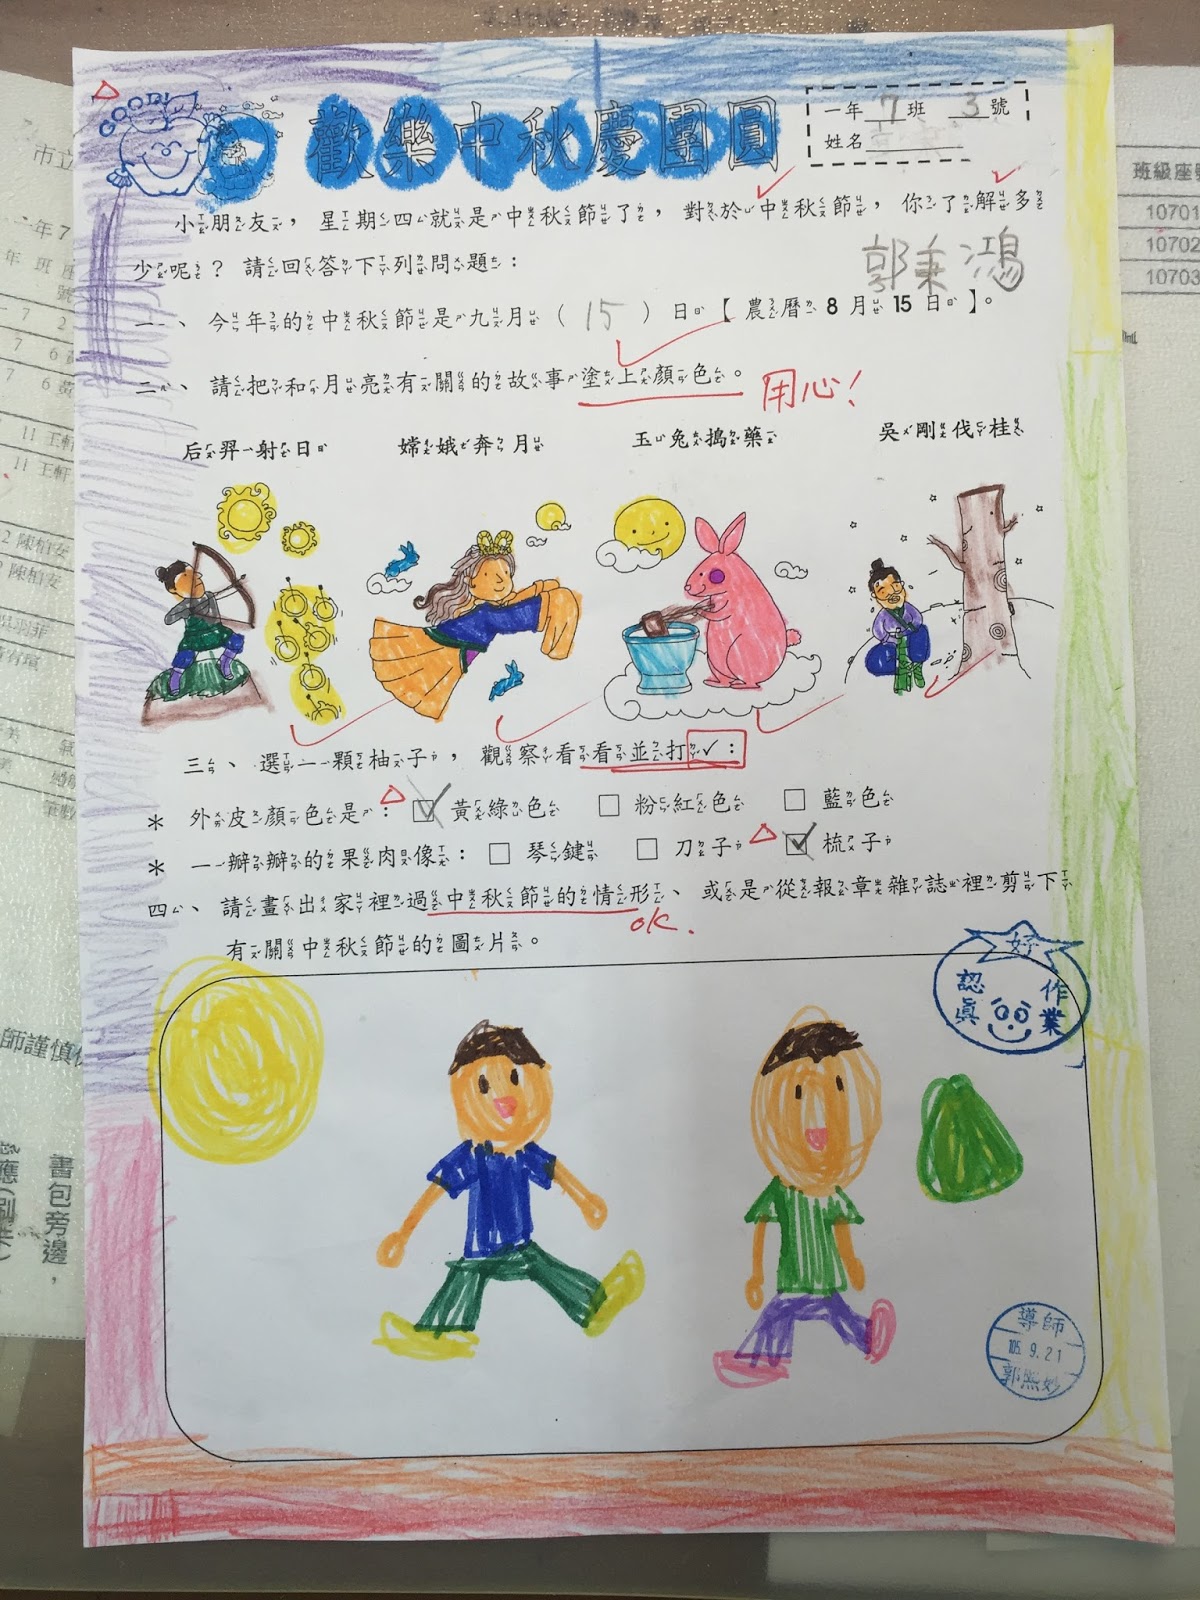 GOOD
歡樂中秋慶團圓
一年 7 班 3 號
姓名
小朋友，星期四就是中秋節了，對於中秋節，你了解多
少呢？請回答下列問題：
郭秉鴻
一、今年的中秋節是九月（ 15 ）日【農曆8月15日】。
二、請把和月亮有關的故事塗上顏色。
用心！
后羿射日 嫦娥奔月 玉兔搗藥 吳剛伐桂
三、選一顆柚子，觀察看看並打✓：
＊ 外皮顏色是： ☑ 黃綠色 □ 粉紅色 □ 藍色
＊ 一瓣瓣的果肉像： □ 琴鍵 □ 刀子 ☑ 梳子
四、請畫出家裡過中秋節的情形、或是從報章雜誌裡剪下
有關中秋節的圖片。
OK.
好
認真
作業
導師
105. 9. 21
郭熙妙
市立
年 7
年 班 座
號
7 2
7 6
7 6 黃
11 王軒
11 王軒
2 陳柏安
陳柏安
師謹慎
書包旁邊，
班級座
10701
10702
10703